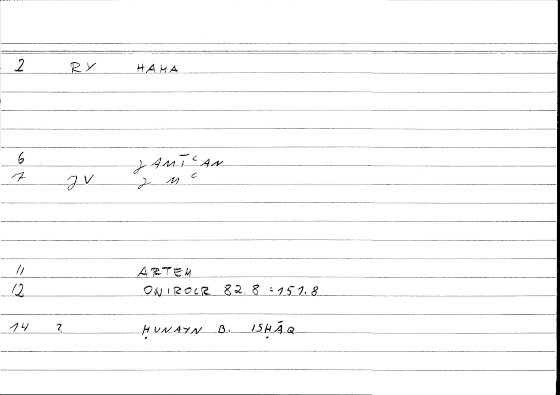 2 RY HAMA
6 JAMĪʿAN
7 JV J Mʿ
11 ARTEM
12 ONIROCR 82.8 : 151.8
14 ? ḤUNAYN B. ISḤĀQ